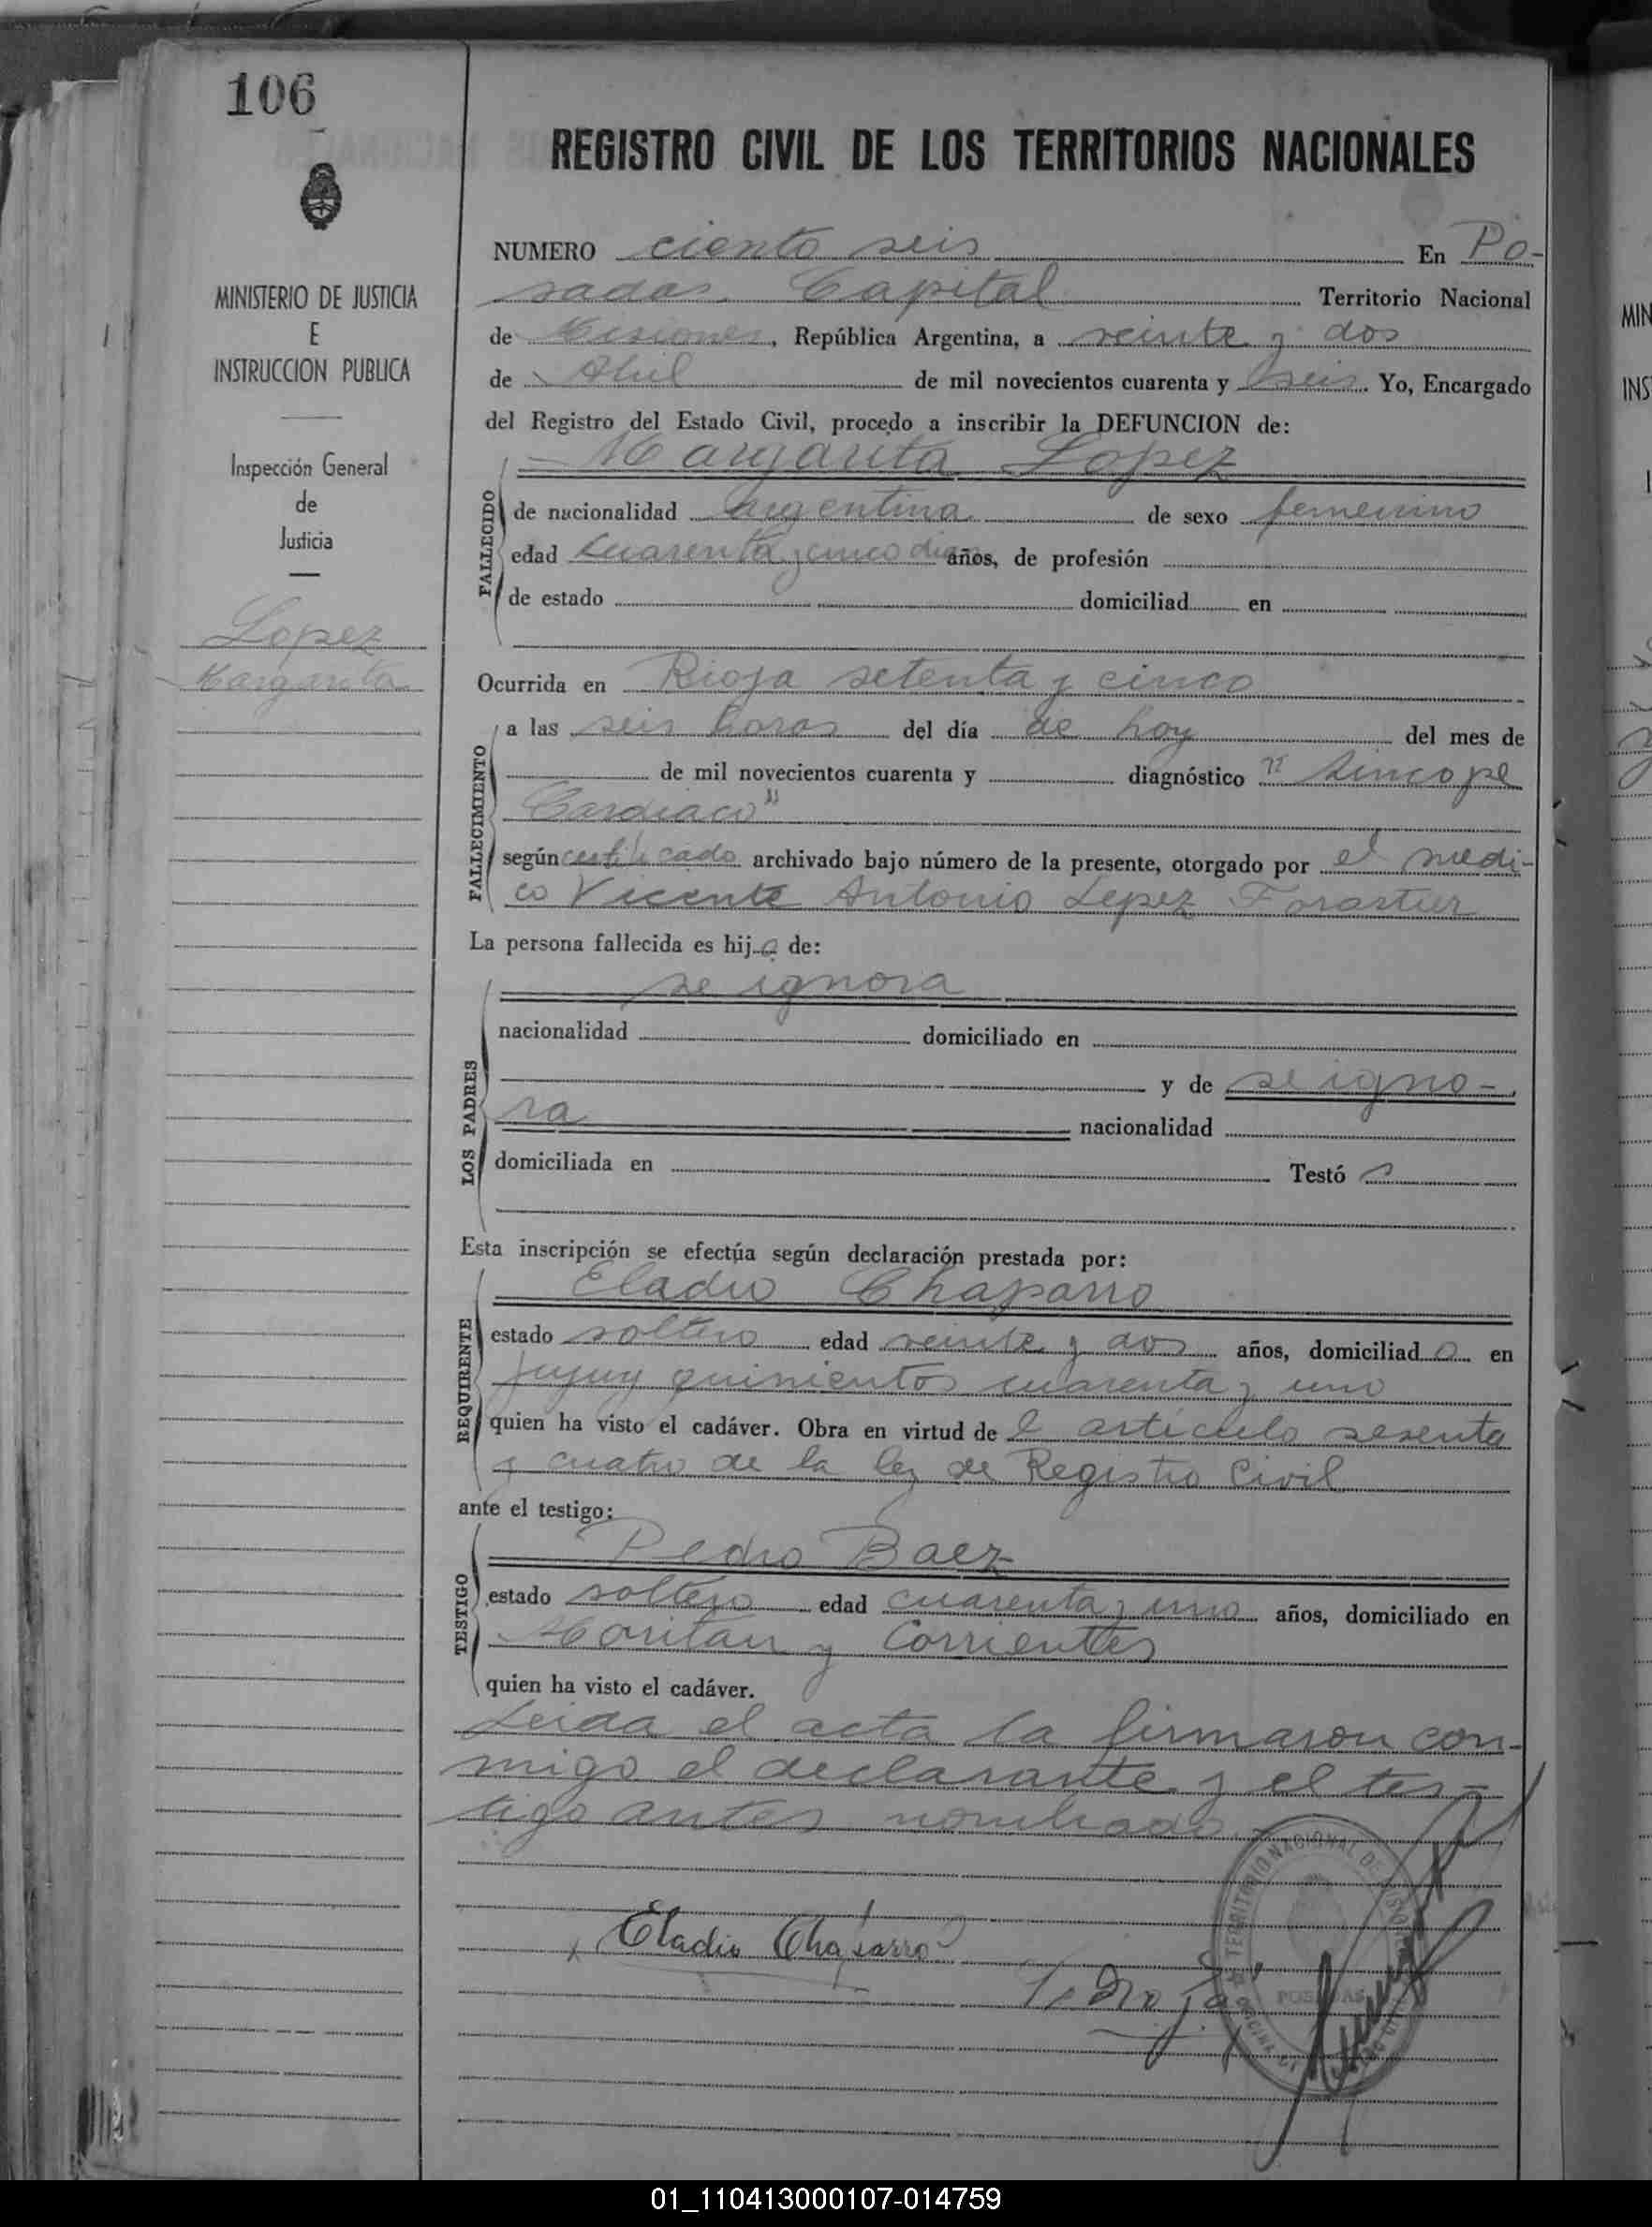 106
REGISTRO CIVIL DE LOS TERRITORIOS NACIONALES
MINISTERIO DE JUSTICIA
E
INSTRUCCION PUBLICA
Inspección General
de
Justicia
Lopez
Margarita
NUMERO ciento seis En Po-
sadas Capital Territorio Nacional
de Misiones, República Argentina, a veinte y dos
de Abril de mil novecientos cuarenta y seis. Yo, Encargado
del Registro del Estado Civil, procedo a inscribir la DEFUNCION de:
Margarita Lopez
FALLECIDO
de nacionalidad argentina de sexo femenino
edad cuarenta y cinco dias años, de profesión
de estado domiciliad en
Ocurrida en Rioja setenta y cinco
FALLECIMIENTO
a las seis horas del día de hoy del mes de
de mil novecientos cuarenta y diagnóstico "Sincope
Cardiaco"
según certificado archivado bajo número de la presente, otorgado por el medi-
co Vicente Antonio Lopez Forastier
La persona fallecida es hija de:
LOS PADRES
se ignora
nacionalidad domiciliado en
y de se igno-
ra nacionalidad
domiciliada en Testó
Esta inscripción se efectúa según declaración prestada por:
REQUIRENTE
Eladio Chaparro
estado soltero edad veinte y dos años, domiciliado en
Jujuy quinientos cuarenta y uno
quien ha visto el cadáver. Obra en virtud de l articulo sesenta
y cuatro de la ley de Registro Civil
ante el testigo:
TESTIGO
Pedro Baez
estado soltero edad cuarenta y uno años, domiciliado en
y Corrientes
quien ha visto el cadáver.
Leida el acta la firmaron con-
migo el declarante y el tes-
tigo antes nombrado.
Eladio Chaparro
TERRITORIO NACIONAL DE MISIONES
POSADAS
01_110413000107-014759